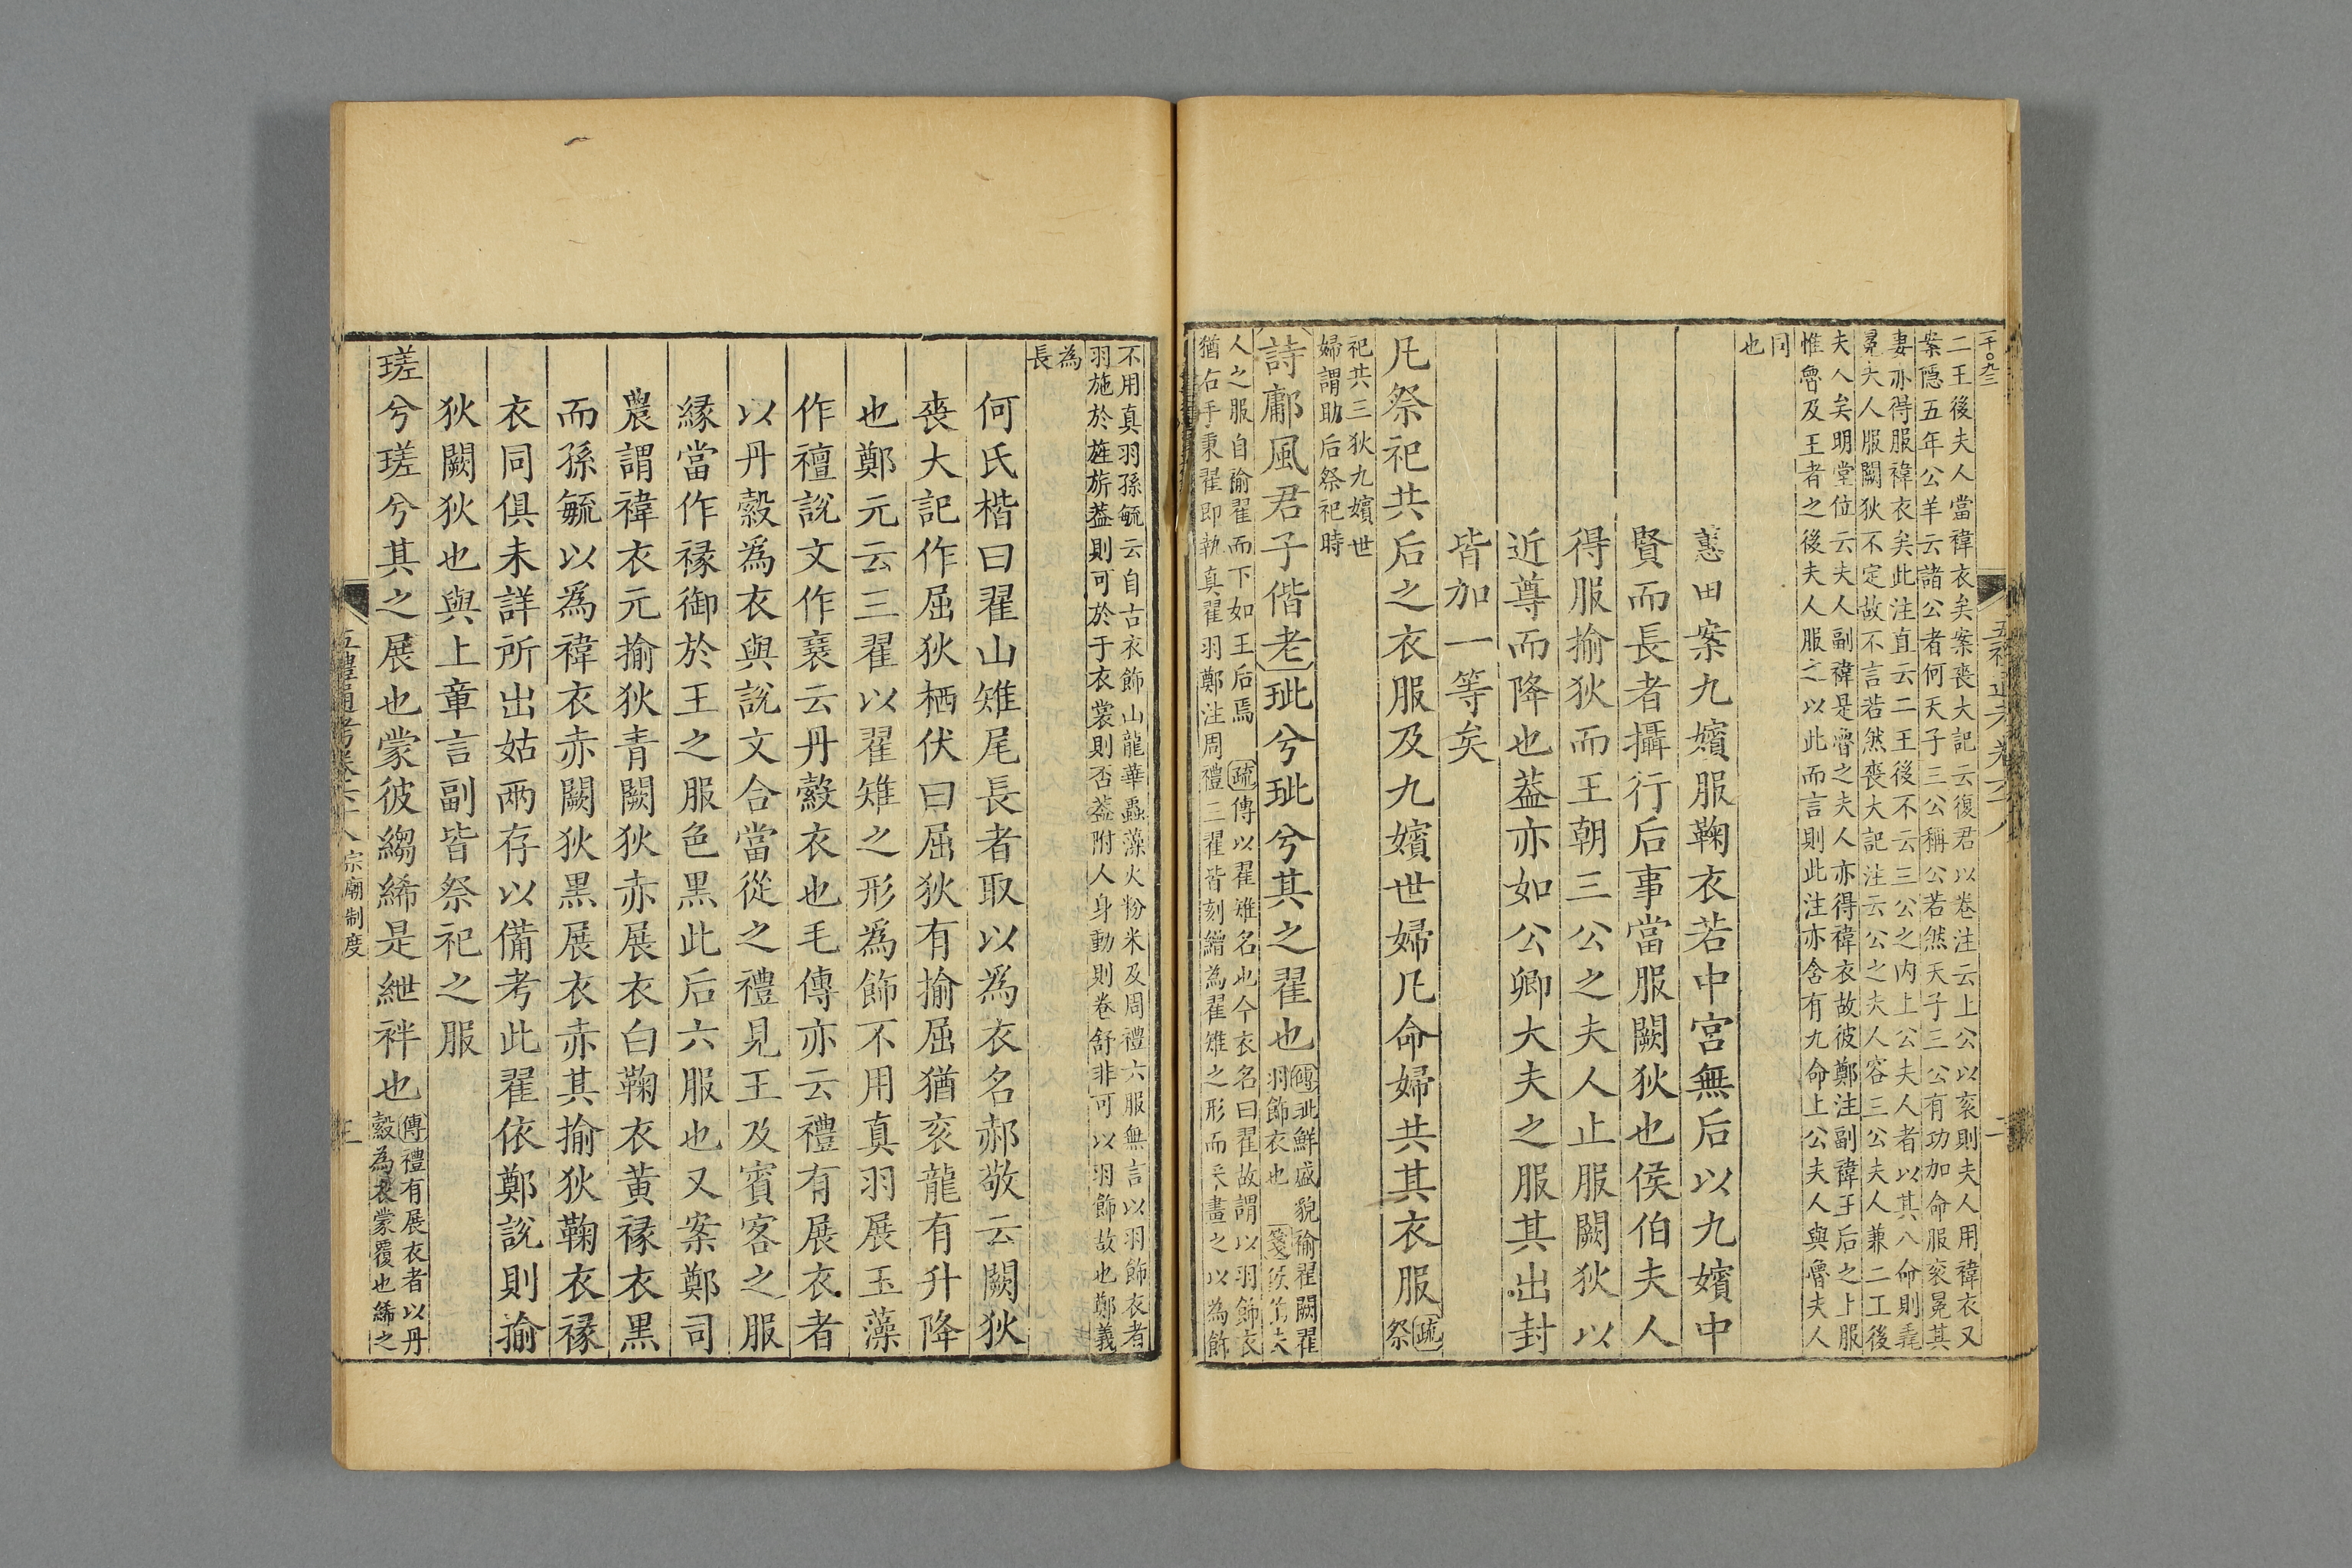 千〇九三
二王後夫人當褘衣矣案喪大記云復君以卷注云上公以衮則夫人用褘衣又
案隱五年公羊云諸公者何天子三公稱公若然天子三公有功加命服衮冕其
妻亦得服褘衣矣此注直云二王後不云三公之内上公夫人者以其八命則毳
冕夫人服闕狄不定故不言若然喪大記注云公之夫人容三公夫人兼二王後
夫人矣明堂位云夫人副褘是魯之夫人亦得褘衣故彼鄭注副褘王后之上服
惟魯及王者之後夫人服之以此而言則此注亦含有九命上公夫人與魯夫人
同
也
蕙田案九嬪服鞠衣若中宮無后以九嬪中
賢而長者攝行后事當服闕狄也侯伯夫人
得服揄狄而王朝三公之夫人止服闕狄以
近尊而降也葢亦如公卿大夫之服其出封
皆加一等矣
凡祭祀共后之衣服及九嬪世婦凡命婦共其衣服疏祭
祀共三狄九嬪世
婦謂助后祭祀時
詩鄘風君子偕老玼兮玼兮其之翟也傳玼鮮盛貌褕翟闕翟
羽飾衣也 箋侯伯夫
人之服自褕翟而下如王后焉 疏傳以翟雉名也今衣名曰翟故謂以羽飾衣
猶右手秉翟即執真翟羽鄭注周禮三翟皆刻繒為翟雉之形而采畫之以為飾
不用真羽孫毓云自古衣飾山龍華蟲藻火粉米及周禮六服無言以羽飾衣者
羽施於旌旂葢則可於于衣裳則否葢附人身動則卷舒非可以羽飾故也鄭義
為
長
何氏楷曰翟山雉尾長者取以爲衣名郝敬云闕狄
喪大記作屈狄栖伏曰屈狄有揄屈猶衮龍有升降
也鄭元云三翟以翟雉之形爲飾不用真羽展玉藻
作襢說文作襄云丹縠衣也毛傳亦云禮有展衣者
以丹縠爲衣與說文合當從之禮見王及賓客之服
緣當作褖御於王之服色黑此后六服也又案鄭司
農謂褘衣元揄狄青闕狄赤展衣白鞠衣黄褖衣黑
而孫毓以爲褘衣赤闕狄黑展衣赤其揄狄鞠衣褖
衣同俱未詳所出姑兩存以備考此翟依鄭說則揄
狄闕狄也與上章言副皆祭祀之服
瑳兮瑳兮其之展也蒙彼縐絺是紲袢也傳禮有展衣者以丹
縠為衣蒙覆也絺之
五禮通考卷六十八 宗廟制度 三